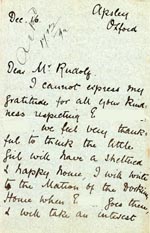 Apsley
Oxford
Dec. 26.
Dear Mr Rudolf.
I cannot express my
gratitude for all your kind-
ness respecting E—
we feel very thank-
ful to think the little
girl will have a sheltered
& happy home, I will write
to the Matron of the Dorking
Home when E— goes there
& will take an interest